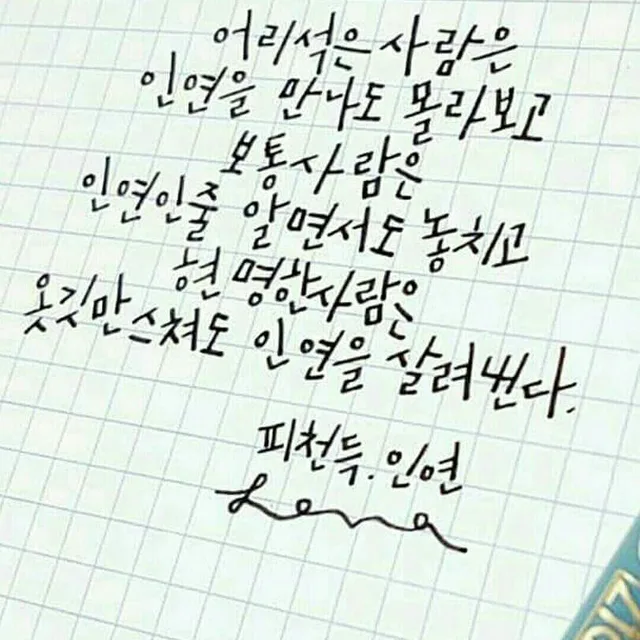 어리석은 사람은
인연을 만나도 몰라보고
보통사람은
인연인줄 알면서도 놓치고
현명한사람은
옷깃만스쳐도 인연을 살려낸다.
피천득.인연
Lena